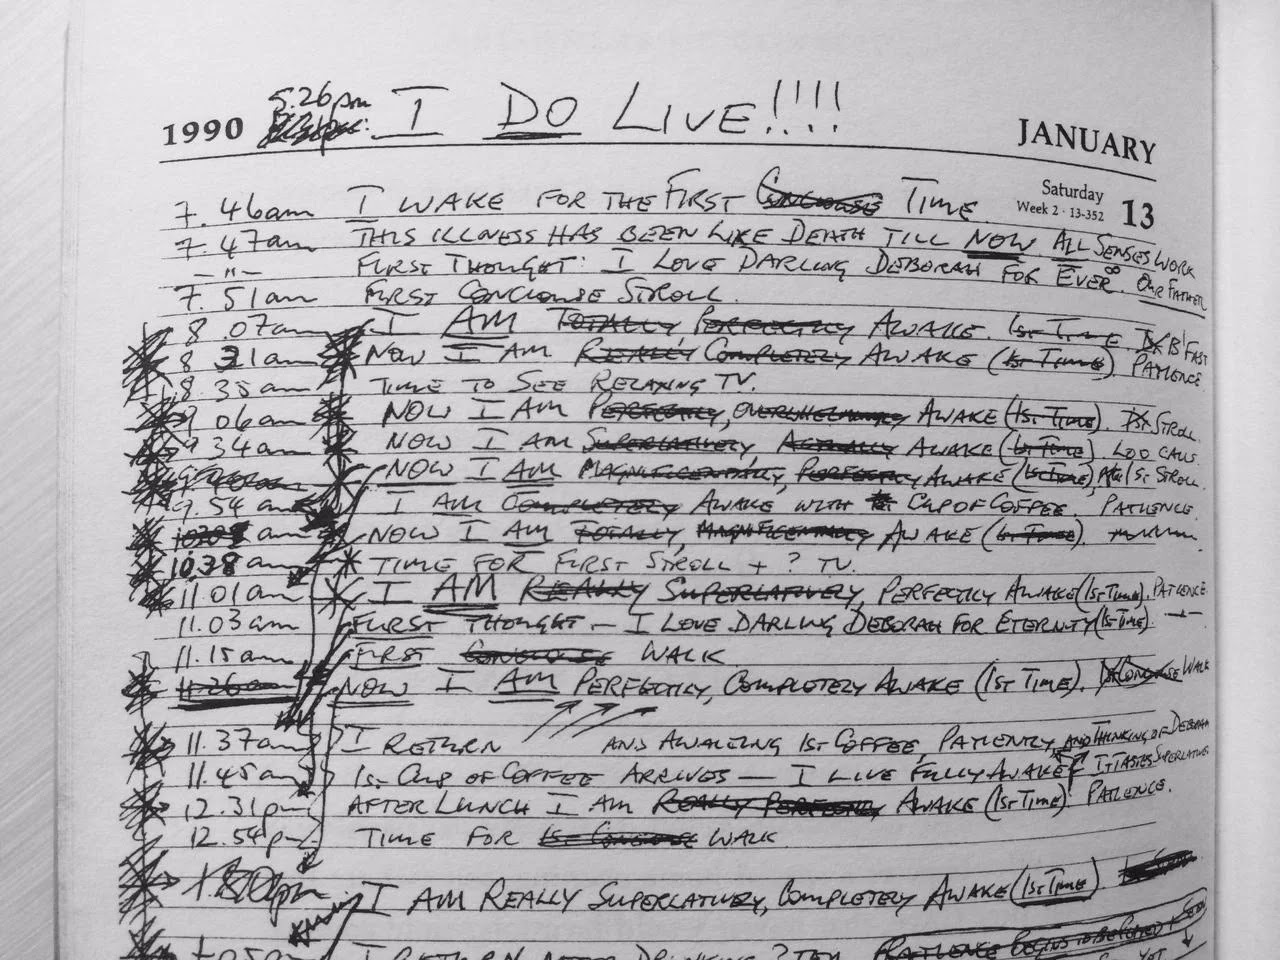 5.26pm I DO LIVE!!!!
1990 JANUARY
Saturday
Week 2 · 13-352 13
7.46am I WAKE FOR THE FIRST CONCIOUSE TIME
7.47am THIS ILLNESS HAS BEEN LIKE DEATH TILL NOW ALL SENSES WORK
–"– FIRST THOUGHT: I LOVE DARLING DEBORAH FOR EVER. OUR FATHER
7.51am FIRST CONCIOUSE STROLL.
8.07am I AM TOTALLY PERFECTLY AWAKE. 1ST TIME B'FAST
8.31am NOW I AM REALLY COMPLETELY AWAKE (1ST TIME) PATIENCE
8.35am TIME TO SEE RELAXING TV.
9.06am NOW I AM PERFECTLY, OVERWHELMINGLY AWAKE (1ST TIME). STROLL.
9.34am NOW I AM SUPERLATIVELY, ACTUALLY AWAKE (1ST TIME) LOO CALL.
NOW I AM MAGNIFICENTLY, PERFECTLY AWAKE (1ST TIME), 1ST STROLL.
9.54am I AM COMPLETELY AWAKE WITH CUP OF COFFEE. PATIENCE.
am NOW I AM TOTALLY MAGNIFICENTLY AWAKE (1ST TIME).
10.38am TIME FOR FIRST STROLL + ? TV.
11.01am I AM REALLY SUPERLATIVELY, PERFECTLY AWAKE (1ST TIME). PATIENCE.
11.03am FURST THOUGHT – I LOVE DARLING DEBORAH FOR ETERNITY (1ST TIME).
11.15am FIRST CONCIOUSE WALK
11.26am NOW I AM PERFECTLY, COMPLETELY AWAKE (1ST TIME). 1ST CONCIOUSE WALK
11.37am I RETURN AND AWAITING 1ST COFFEE, PATIENTLY, AND THINKING OF DEBORAH
11.45am 1ST CUP OF COFFEE ARRIVES — I LIVE FULLY AWAKE IT TASTES SUPERLATIVE
12.31pm AFTER LUNCH I AM REALLY PERFECTLY AWAKE (1ST TIME) PATIENCE.
12.54pm TIME FOR 1ST CONCIOUSE WALK
pm I AM REALLY SUPERLATIVELY, COMPLETELY AWAKE (1ST TIME)
I RETURN AFTER DRINKING ? PATIENCE BEGINS TO BE